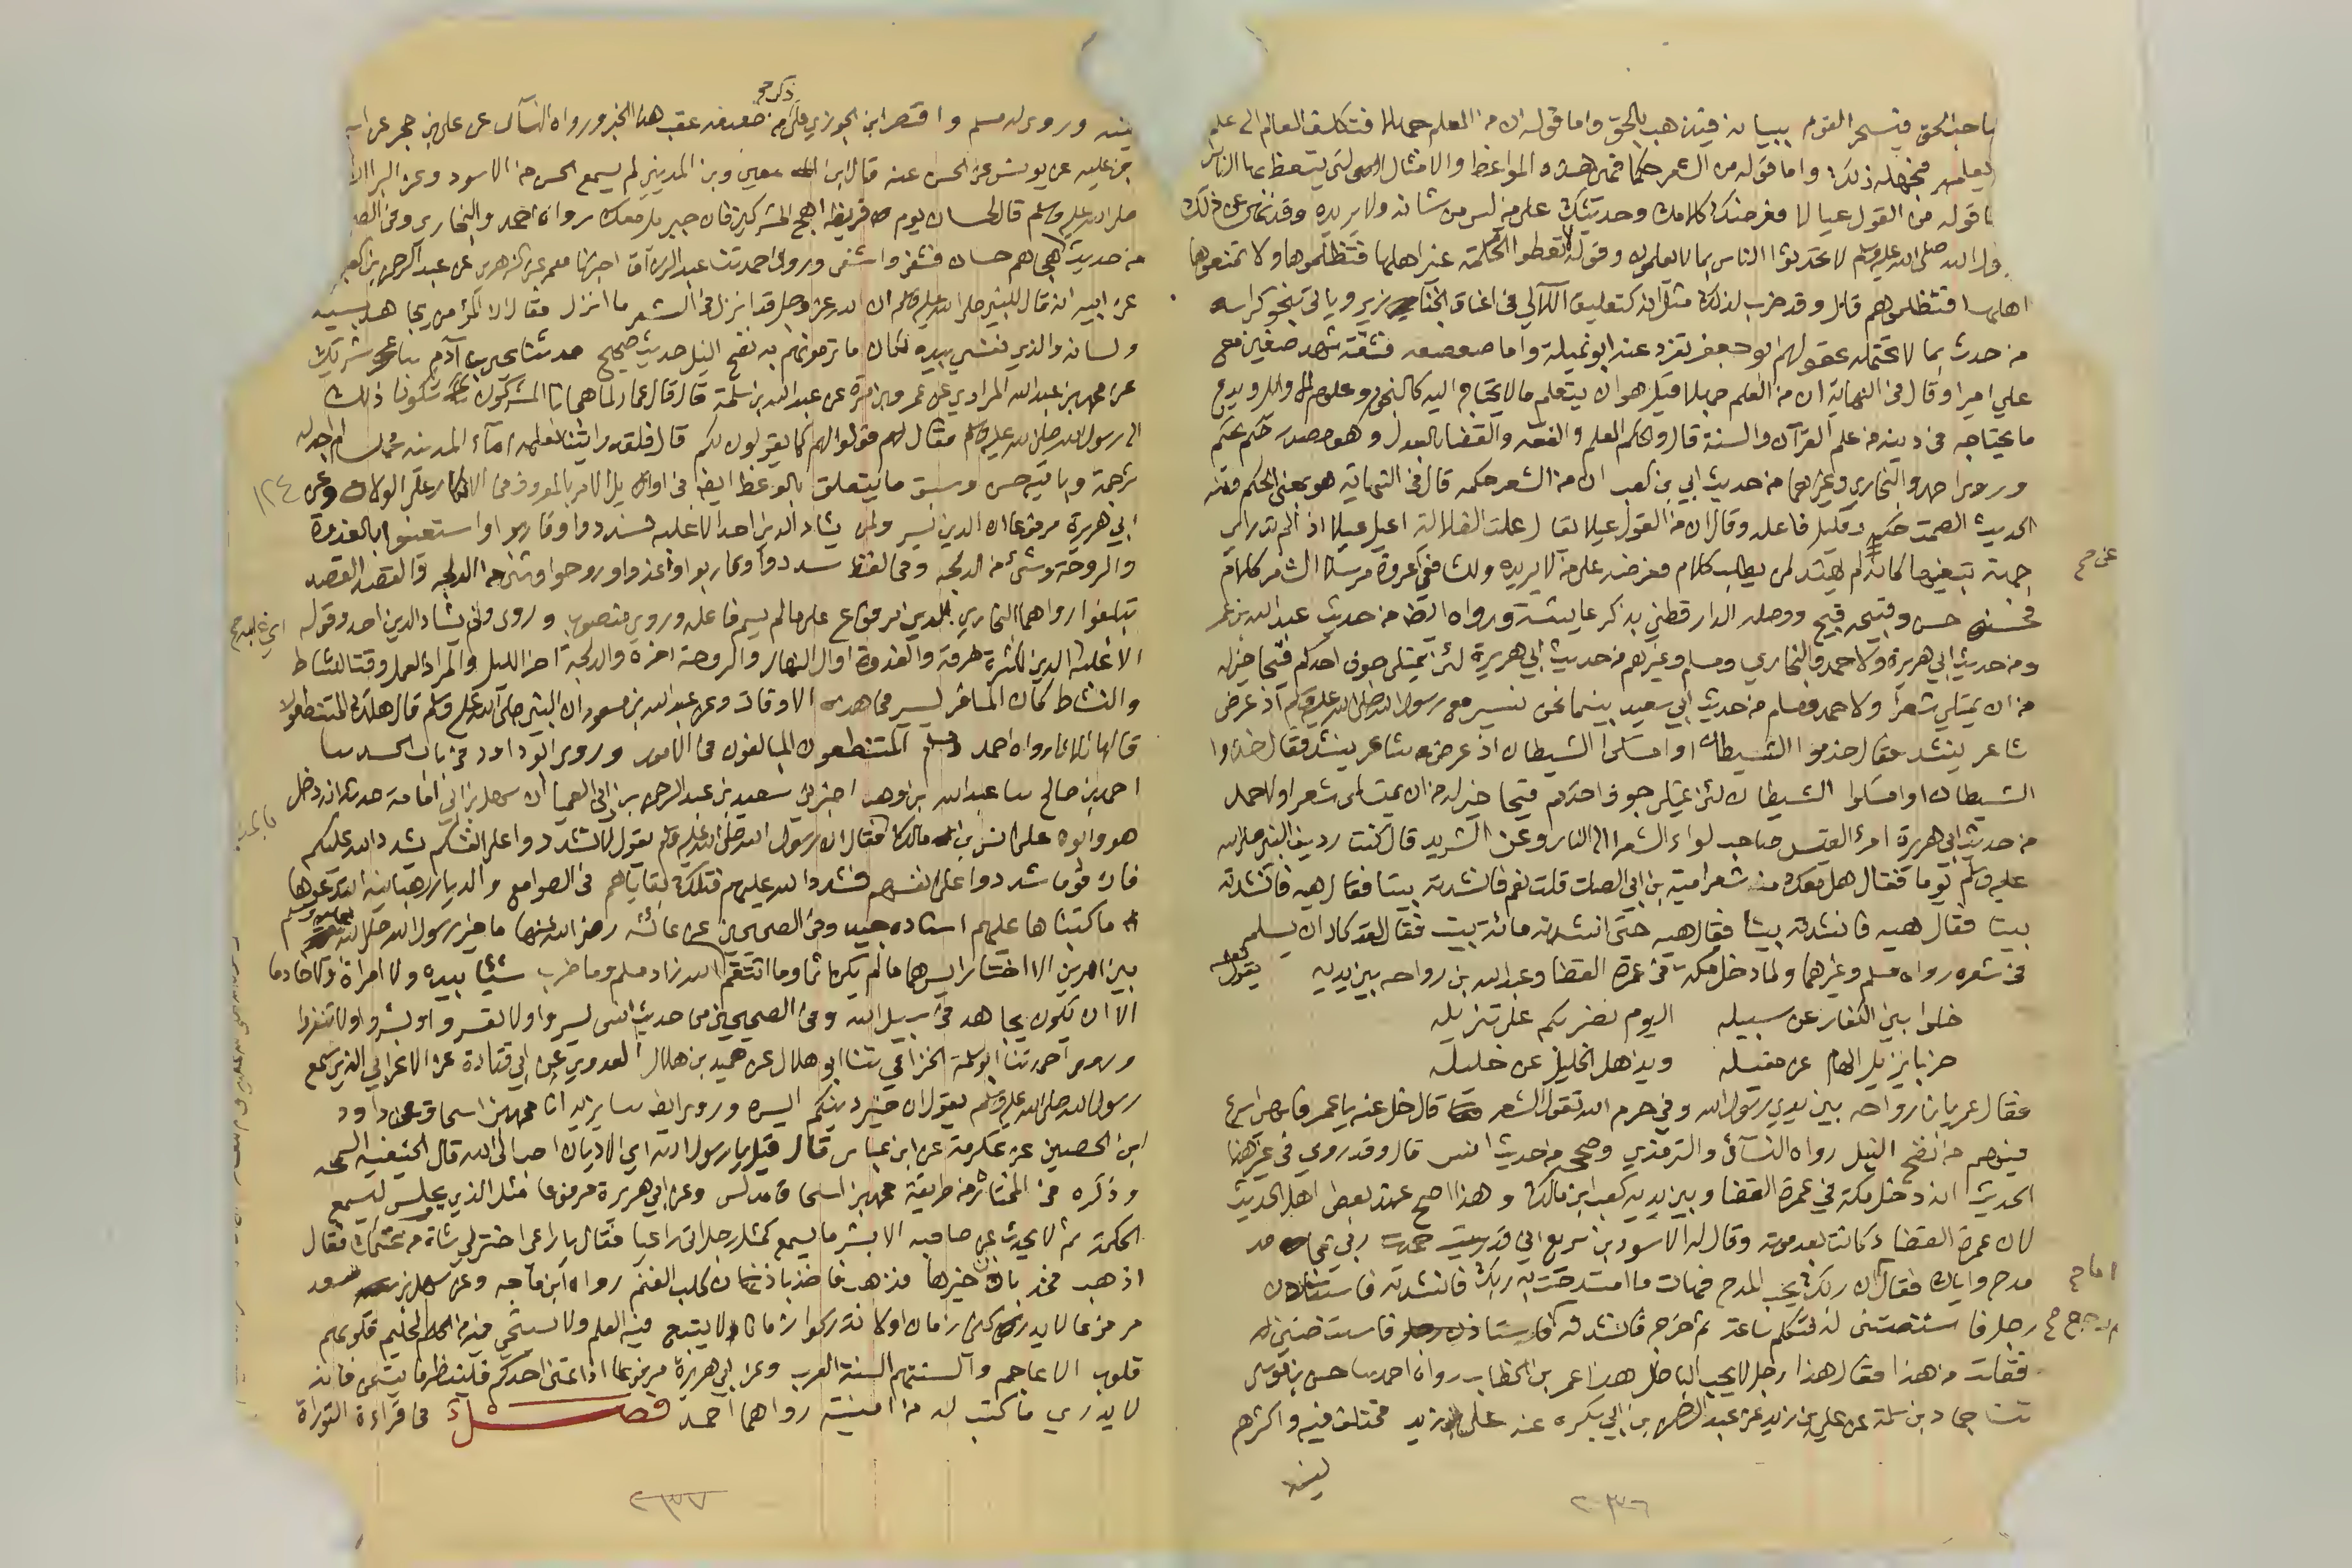 صاحب الحق فيسحر القوم ببيانه فيذهب بالحق واما قوله ان من العلم جهلا فتكلف العالم الى علمه
ما لا يعلمه فيجهله ذلك واما قوله من الشعر حكما فهي هذه المواعظ والامثال التي يتعظ بها الناس
واما قوله من القول عيالا فعرضك كلامك وحديثك على من ليس من شانه ولا يريده وقد نهى عن ذلك
رسول الله صلى الله عليه وسلم لا تحدثوا الناس بما لا يعلمون وقوله لا تعطوا الحكمة غير اهلها فتظلموها ولا تمنعوها
اهلها فتظلموهم قال وقد ضرب لذلك مثل انه كتعليق اللآلي في اعناق الخنازير وياتي بنحو كراسه
من حدث بما لا تحتمله عقولهم ابو جعفر تفرد عنه ابو تميلة واما صعصعه فثقة شهد صفين مع
علي اميرا وقال في النهاية ان من العلم جهلا قيل هو ان يتعلم ما لا يحتاج اليه كالنجوم وعلوم الاوايل ويدع
ما يحتاجه في دينه من علم القرآن والسنة قال والحكم العلم والفقه والقضا بالعدل وهو مصدر حكم يحكم
وروى احمد والبخاري وغيرهما من حديث ابي بن كعب ان من الشعر حكمه قال في النهاية هو بمعنى الحكم ومنه
الحديث الصمت حكم وقليل فاعله وقال ان من القول عيلا يقال علت الضالة اعيل عيلا اذا لم تدر اي
جهة تبغيها كانه لم يهتد لمن يطلب كلامه فعرضه على من لا يريده وللشافعي عن عروة مرسلا الشعر كلام
عن صح
فحسنه حسن وقبيحه قبيح ووصله الدارقطني بذكر عايشة ورواه ايضا من حديث عبد الله بن عمر
ومن حديث ابي هريرة ولاحمد والبخاري ومسلم وغيرهم من حديث ابي هريرة لئن يمتلى جوف احدكم قيحا خير له
من ان يمتلي شعرا ولاحمد ومسلم من حديث ابي سعيد بينما نحن نسير مع رسول الله صلى الله عليه وسلم اذ عرض
شاعر ينشد فقال خذوا الشيطان او امسكوا الشيطان اذ عرض شاعر ينشد فقال خذوا
الشيطان او امسكوا الشيطان لئن يمتلي جوف احدكم قيحا خير له من ان يمتلى شعرا ولاحمد
من حديث ابي هريرة امرؤ القيس صاحب لواء الشعرا الى النار وعن الشريد قال كنت رديف النبي صلى الله
عليه وسلم يوما فقال هل معك من شعر امية بن ابي الصلت قلت نعم فانشدته بيتا فقال هيه فانشدته
بيتا فقال هيه فانشدته بيتا فقال هيه حتى انشدته مائة بيت فقال لقد كاد ان يسلم
في شعره رواه مسلم وغيرهما ولما دخل مكة في عمرة القضا وعبد الله بن رواحه بين يديه يقول
خلوا بني الكفار عن سبيله اليوم نضربكم على تنزيله
ضربا يزيل الهام عن مقيله ويذهل الخليل عن خليله
فقال عمر يا ابن رواحه بين يدي رسول الله وفي حرم الله تقول الشعر قال خل عنه يا عمر فلهي اسرع
فيهم من نضح النبل رواه النسآئي والترمذي وصححه من حديث انس قال وقد روي في غير هذا
الحديث انه دخل مكة في عمرة القضا وبين يديه كعب ابن مالك وهذا اصح عند بعض اهل الحديث
لان عمرة القضا كانت بعد موته وقال له الاسود بن سريع اني قد حمدت ربي بمحامد
مدح واياك فقال ان ربك يحب المدح فهات ما امتدحت به ربك فانشدته فاستاذن
اما صح
رجل فاستنصتني له فتكلم ساعة ثم خرج فانشدته فاستاذن رجل فاستنصتني له
فقلت من هذا فقال هذا رجل لا يحب الباطل هذا عمر بن الخطاب رواه احمد حسن بن موسى
ثنا حماد بن سلمة عن علي بن زيد عن عبد الرحمن بن ابي بكره عنه علي بن زيد مختلف فيه واكثرهم
لينه
٢٠٣٦
ذكر صح
لينه وروى له مسلم واقتصر ابن الجوزي على من ضعفه عقب هذا الخبر ورواه النسآئي عن علي بن حجر عن اب
بن علية عن يونس عن الحسن عنه قال ابن معين وبن المديني لم يسمع الحسن من الاسود وعن البرا ان
صلى الله عليه وسلم قال لحسان يوم قريظة اهج المشركين فان جبريل معك رواه احمد والبخاري وفي الصح
من حديث هجاهم حسان فشفى واشتفى وروى احمد ثنا عبد الرزاق اخبرنا معمر عن الزهري عن عبد الرحمن بن كعب
عن ابيه انه قال للنبي صلى الله عليه وسلم ان الله عز وجل قد انزل في الشعر ما انزل فقال ان المؤمن يجاهد بسيفه
ولسانه والذي نفسي بيده لكان ما ترمونهم به نضح النبل حديث صحيح حدثنا يحيى بن آدم شريك
عن محمد بن عبد الله المرادي عن عمرو بن مرة عن عبد الله بن سلمة قال قال عمار لما هجانا المشركون شكونا ذلك
الى رسول الله صلى الله عليه وسلم فقال قولوا لهم كما يقولون لكم قال فلقد رايتنا نعلمه اماء المدينه محمد لم اجد له
ترجمة وباقيه حسن وسبق ما يتعلق بالوعظ ايضا في اوايل الامر بالمعروف في الانكار على الولاة وعن
١٢٤
ابي هريرة مرفوعا ان الدين يسر ولن يشاد الدين احد الا غلبه فسددوا وقاربوا واستعينوا بالغدوة
والروحة وشئ من الدلجة وفي لفظ سددوا وقاربوا واغدوا وروحوا وشئ من الدلجه والقصد القصد
تبلغوا رواهما البخاري الدين مرفوع على ما لم يسم فاعله وروي منصوبا وروى ولن يشاد الدين احد وقوله
الا غلبه الدين لكثرة طرقه والغدوة اول النهار والروحة اخره والدلجة اخر الليل والمراد العمل وقت النشاط
والنشاط كما ان المسافر يسير في هذه الاوقات وعن عبد الله بن مسعود ان النبي صلى الله عليه وسلم قال هلك المتنطعون
قالها ثلاثا رواه احمد ومسلم المتنطعون المبالغون في الامور وروى ابو داود في باب الحسد
احمد بن صالح عبد الله بن وهب اخبرني سعيد بن عبد الرحمن بن ابي العميا ان سهل بن ابي امامة حدثه انه دخل
هو وابوه على انس بن مالك فقال ان رسول الله صلى الله عليه وسلم يقول لا تشددوا على انفسكم يشدد الله عليكم
فان قوما شددوا على انفسهم فشدد الله عليهم فتلك بقاياهم في الصوامع والديار رهبانية ابتدعوها
ما كتبناها عليهم اسناده جيد وفي الصحيحين عن عائشة رضي الله عنها ما خير رسول الله صلى الله عليه وسلم
بين امرين الا اختار ايسرهما ما لم يكن اثما وما انتقم لله زاد مسلم وما ضرب شيئا بيده ولا امراة ولا خادما
الا ان يكون يجاهد في سبيل الله وفي الصحيحين من حديث انس يسروا ولا تعسروا وبشروا ولا تنفروا
وروى احمد ثنا ابو سلمة الخزاعي ثنا ابو هلال عن حميد بن هلال العدوي عن ابي قتادة عن الاعرابي الذي سمع
رسول الله صلى الله عليه وسلم يقول ان خير دينكم ايسره وروى ايضا يزيد انا محمد بن اسحاق عن داود
ابن الحصين عن عكرمة عن ابن عباس قال قيل يا رسول الله اي الاديان احب الى الله قال الحنيفية السمحه
وذكره في المختارة من طريق محمد بن اسحاق مدلس وعن ابي هريرة مرفوعا مثل الذي يجلس ليسمع
الحكمة ثم لا يحدث عن صاحبه الا بشر ما يسمع كمثل رجل اتى راعيا فقال يا راعي اختر لي شاة من غنمك فقال
اذهب فخذ باذن خيرها فذهب فاخذ باذن كلب الغنم رواه ابن ماجه وعن سهل بن سعد
مرفوعا لا يدركني زمان اولا تدركوا زمانا لا يتبع فيه العلم ولا يستحيي فيه من الحليم قلوبهم
قلوب الاعاجم والسنتهم السنة العرب وعن ابي هريرة مرفوعا اذا تمنى احدكم فلينظر ما يتمنى فانه
لا يدري ما يكتب له من امنيته رواهما احمد فصل في قراءة التوراة
٢٠٣٧